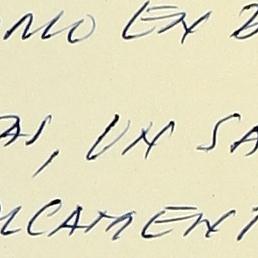 OMO EN D
AS, UN SA
LCAMENT